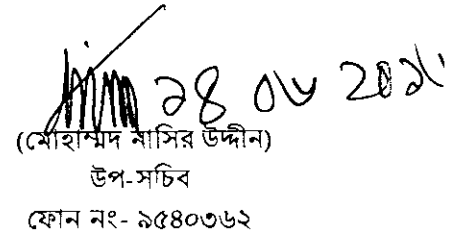 ২৪ ০৬ ২০২১
(মোহাম্মদ নাসির উদ্দীন)
উপ-সচিব
ফোন নং- ৯৫৪০৩৬২